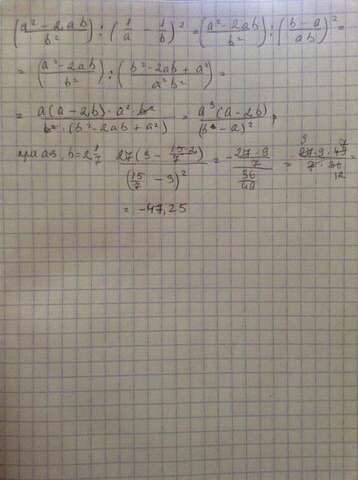 (a² - 2ab / b²) : (1/a - 1/b)² = (a² - 2ab / b²) : (b - a / ab)² =
= (a² - 2ab / b²) : (b² - 2ab + a² / a²b²) =
= a(a - 2b) · a² · b² / b² · (b² - 2ab + a²) = a³(a - 2b) / (b - a)² ,
при a=3, b=2 1/7 27(3 - 15·2/7) / (15/7 - 3)² = - 27·9/7 / 36/49 = 27·9·49 / 7·36 =
= -47,25